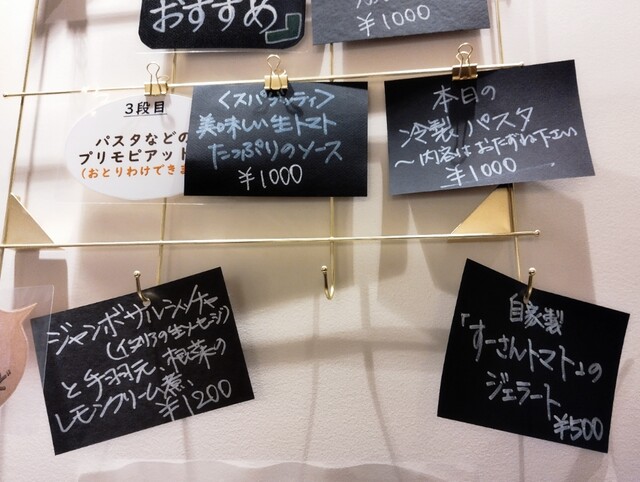 おすすめ
¥1000
3段目
パスタなどの
プリモピアット
(おとりわけできま
〈スパゲッティ〉
美味しい生トマト
たっぷりのソース
¥1000
本日の
冷製パスタ
〜内容はおたずね下さい
¥1000
ジャンボサルシッチャ
(イタリアの生ソーセージ)
と手羽元、根菜の
レモンクリーム煮、
¥1200
自家製
「すーさんトマト」の
ジェラート
¥500